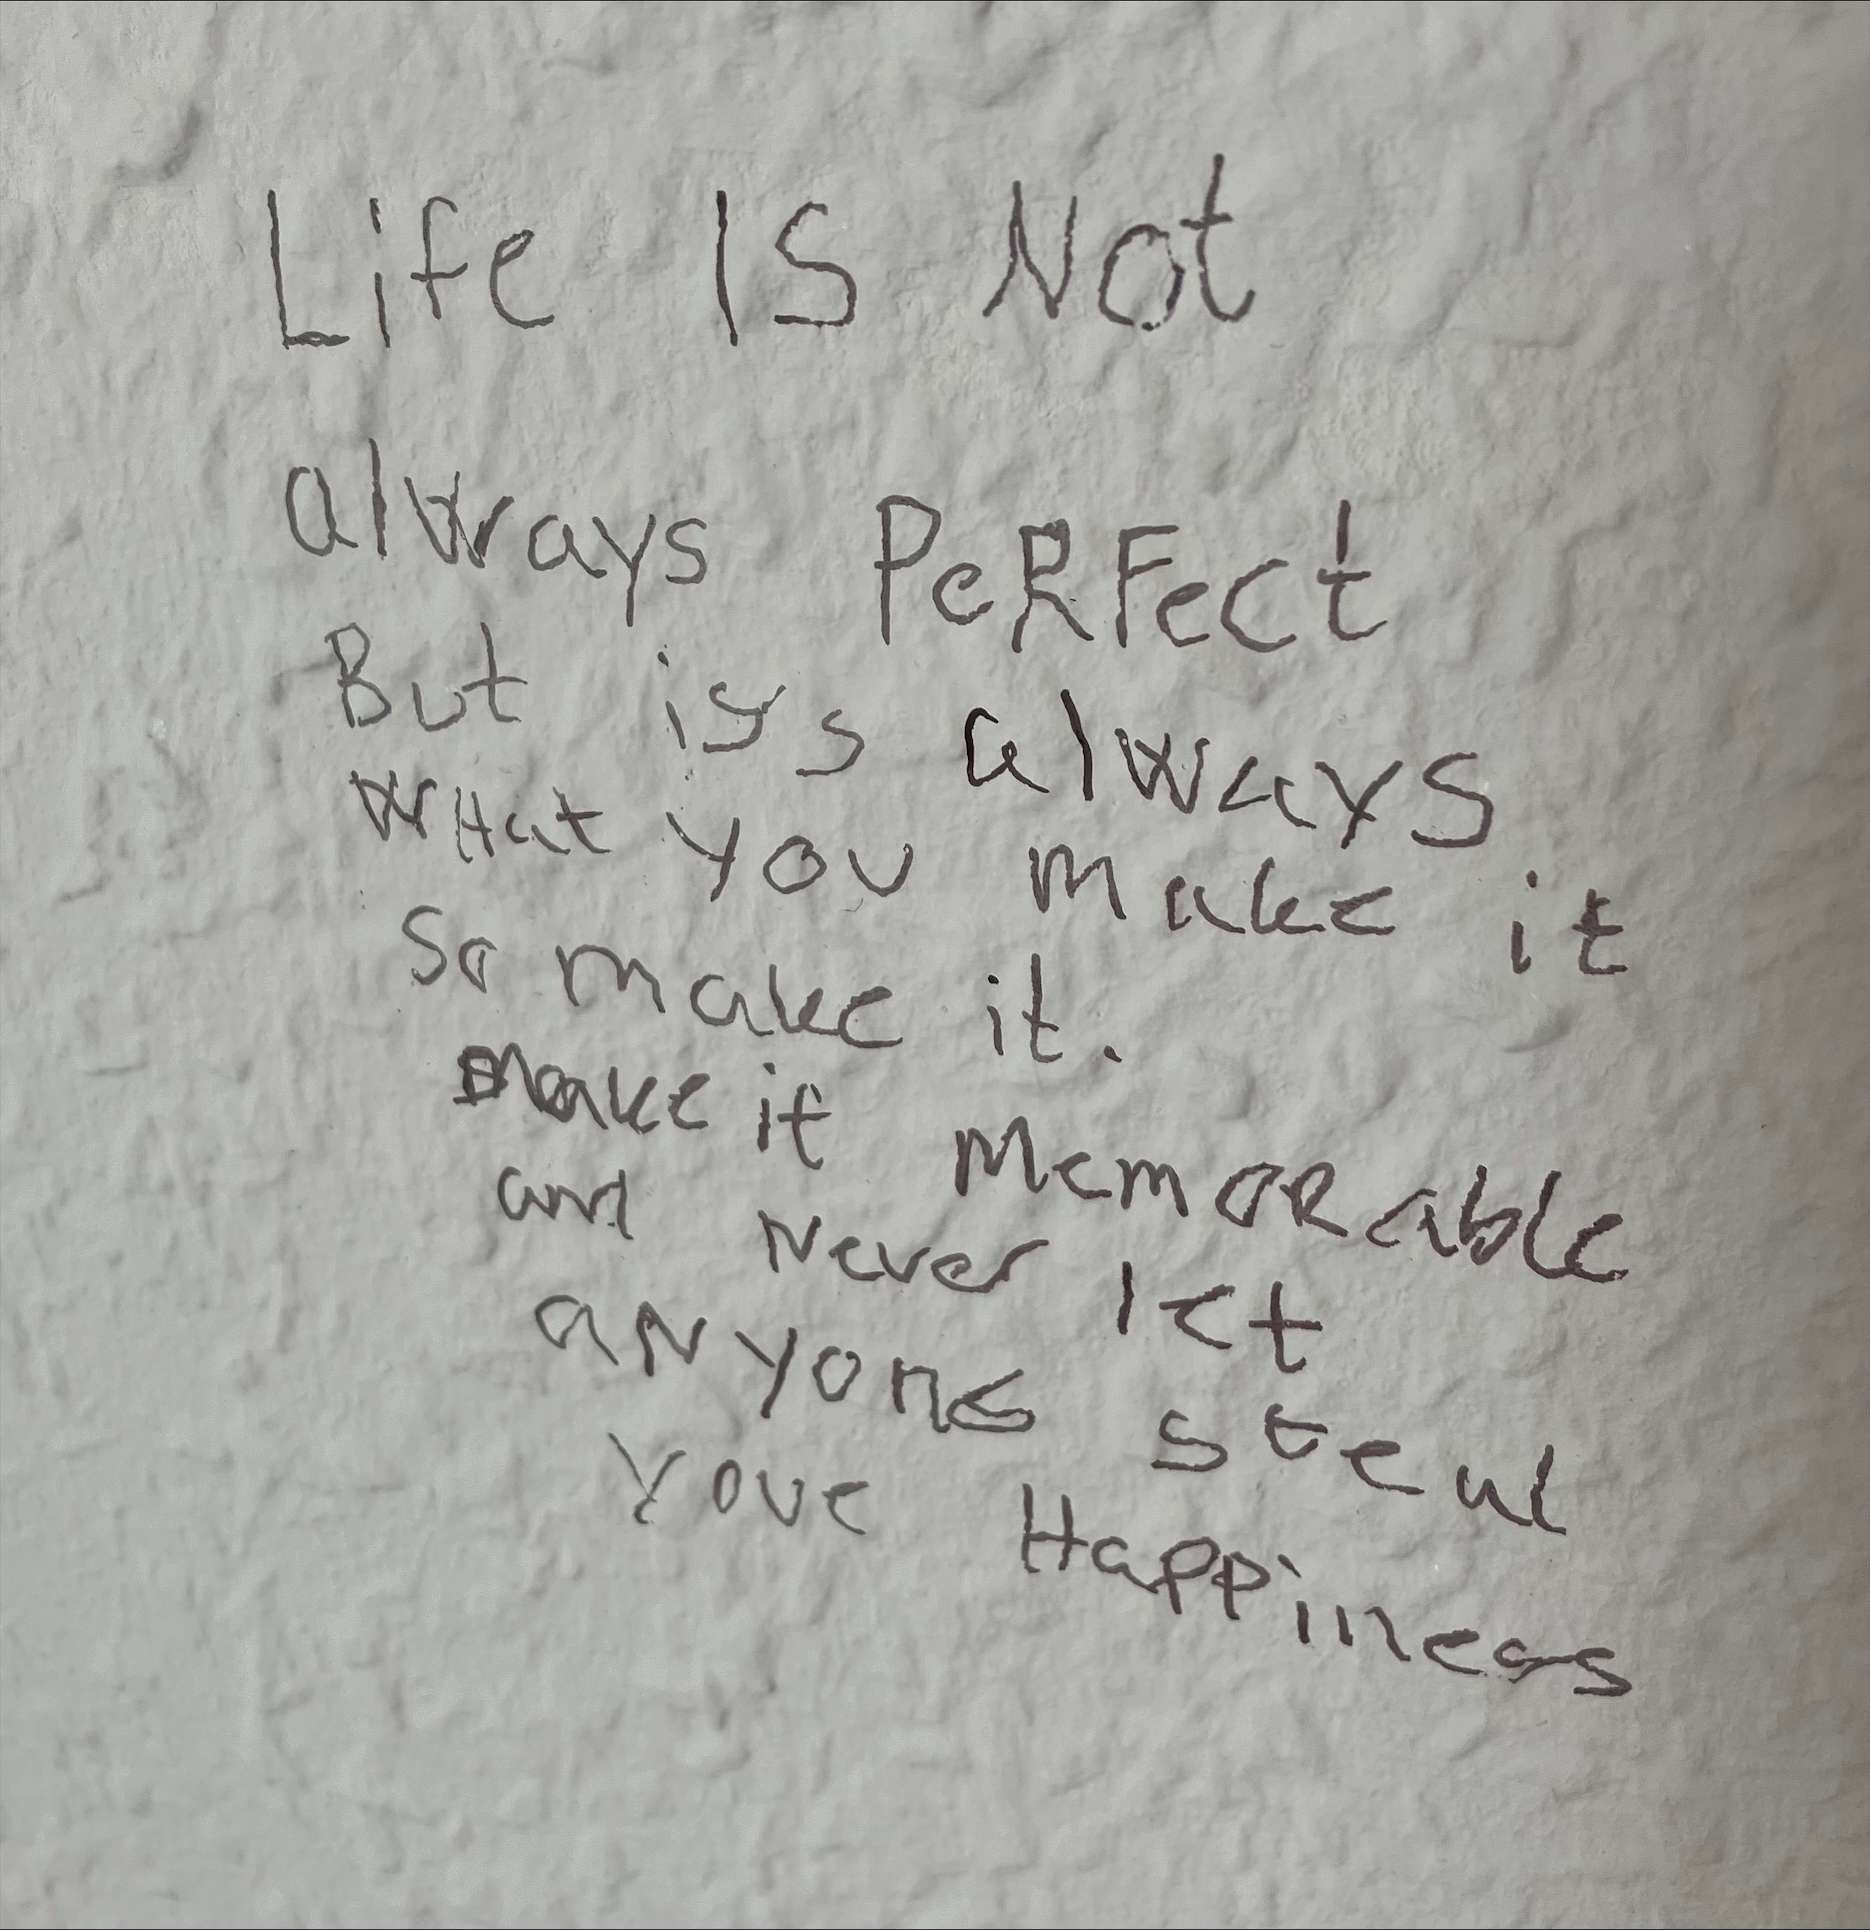 Life IS Not
always PeRFect
But iss always
WHat you make it
So make it.
make it MemoRable
and Never let
aNyone steal
Youe Happiness